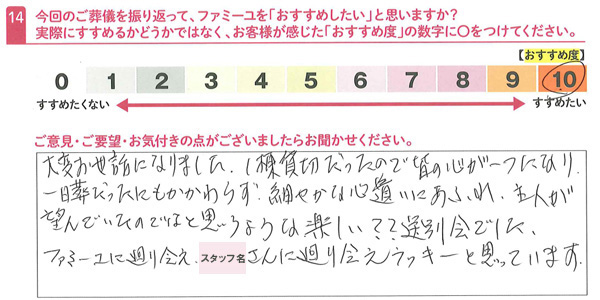 14 今回のご葬儀を振り返って、ファミーユを「おすすめしたい」と思いますか?
実際にすすめるかどうかではなく、お客様が感じた「おすすめ度」の数字に〇をつけてください。
【おすすめ度】
0 1 2 3 4 5 6 7 8 9 10
すすめたくない すすめたい
ご意見・ご要望・お気付きの点がございましたらお聞かせください。
大変お世話になりました。1棟貸切だったので皆の心が一つになり、
一日葬だったにもかかわらず、細やかな心遣いにあふれ、主人が
望んでいたのでは?と思うような楽しい??送別会でした。
ファミーユに廻り会え、スタッフ名さんに廻り会えラッキーと思っています。